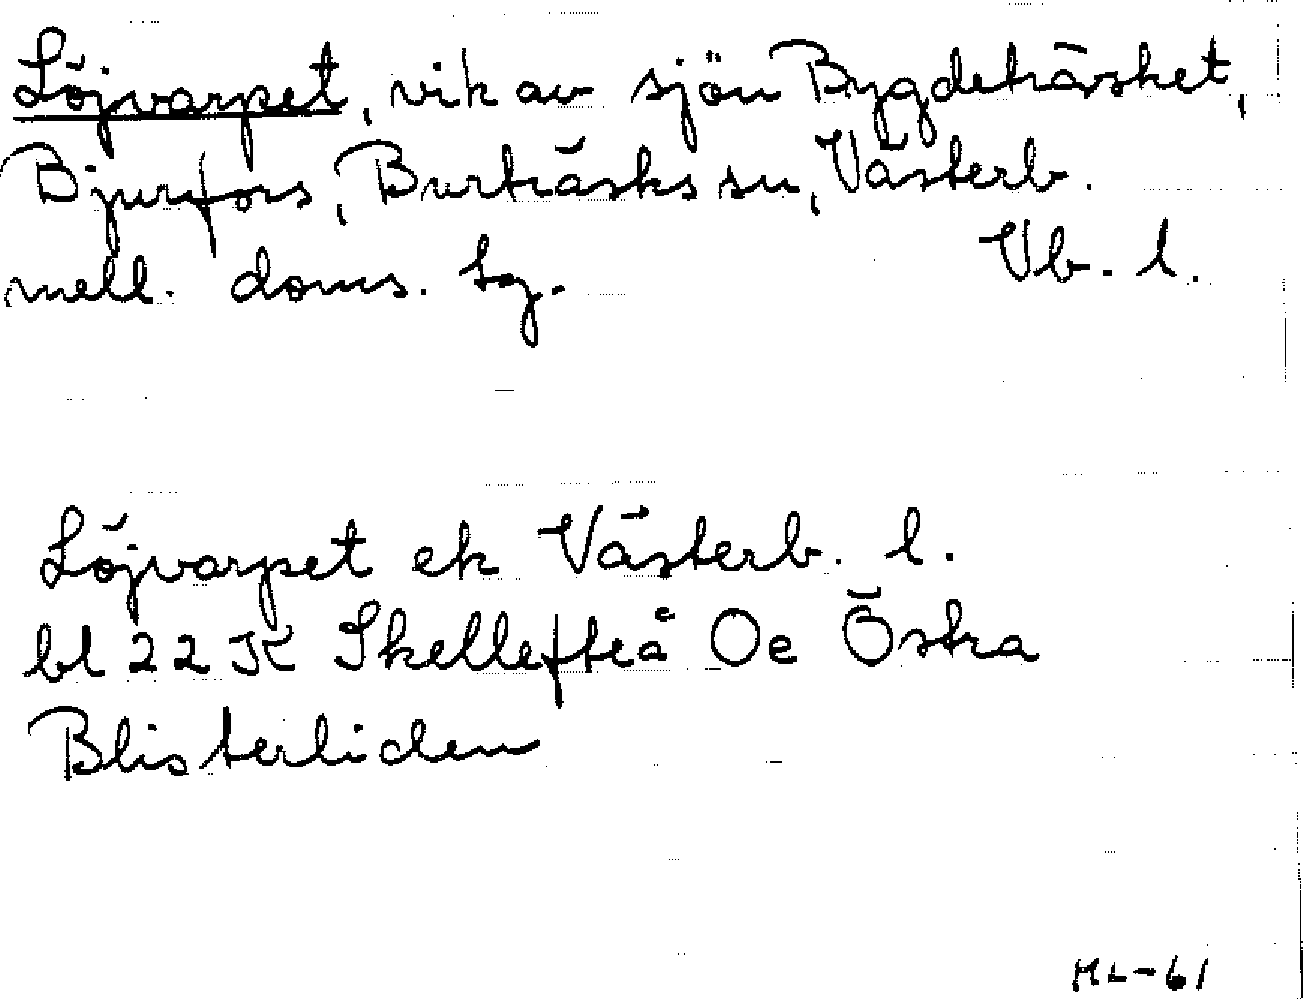 Löjvarpet, vik av sjön Bygdeträsket,
Bjurfors, Burträsks sn, Västerb.
mell. doms. sg. Vb. l.
Löjvarpet ek Västerb. l.
bl 22 K Skellefteå Oe Östra
Blisterliden
ML-61